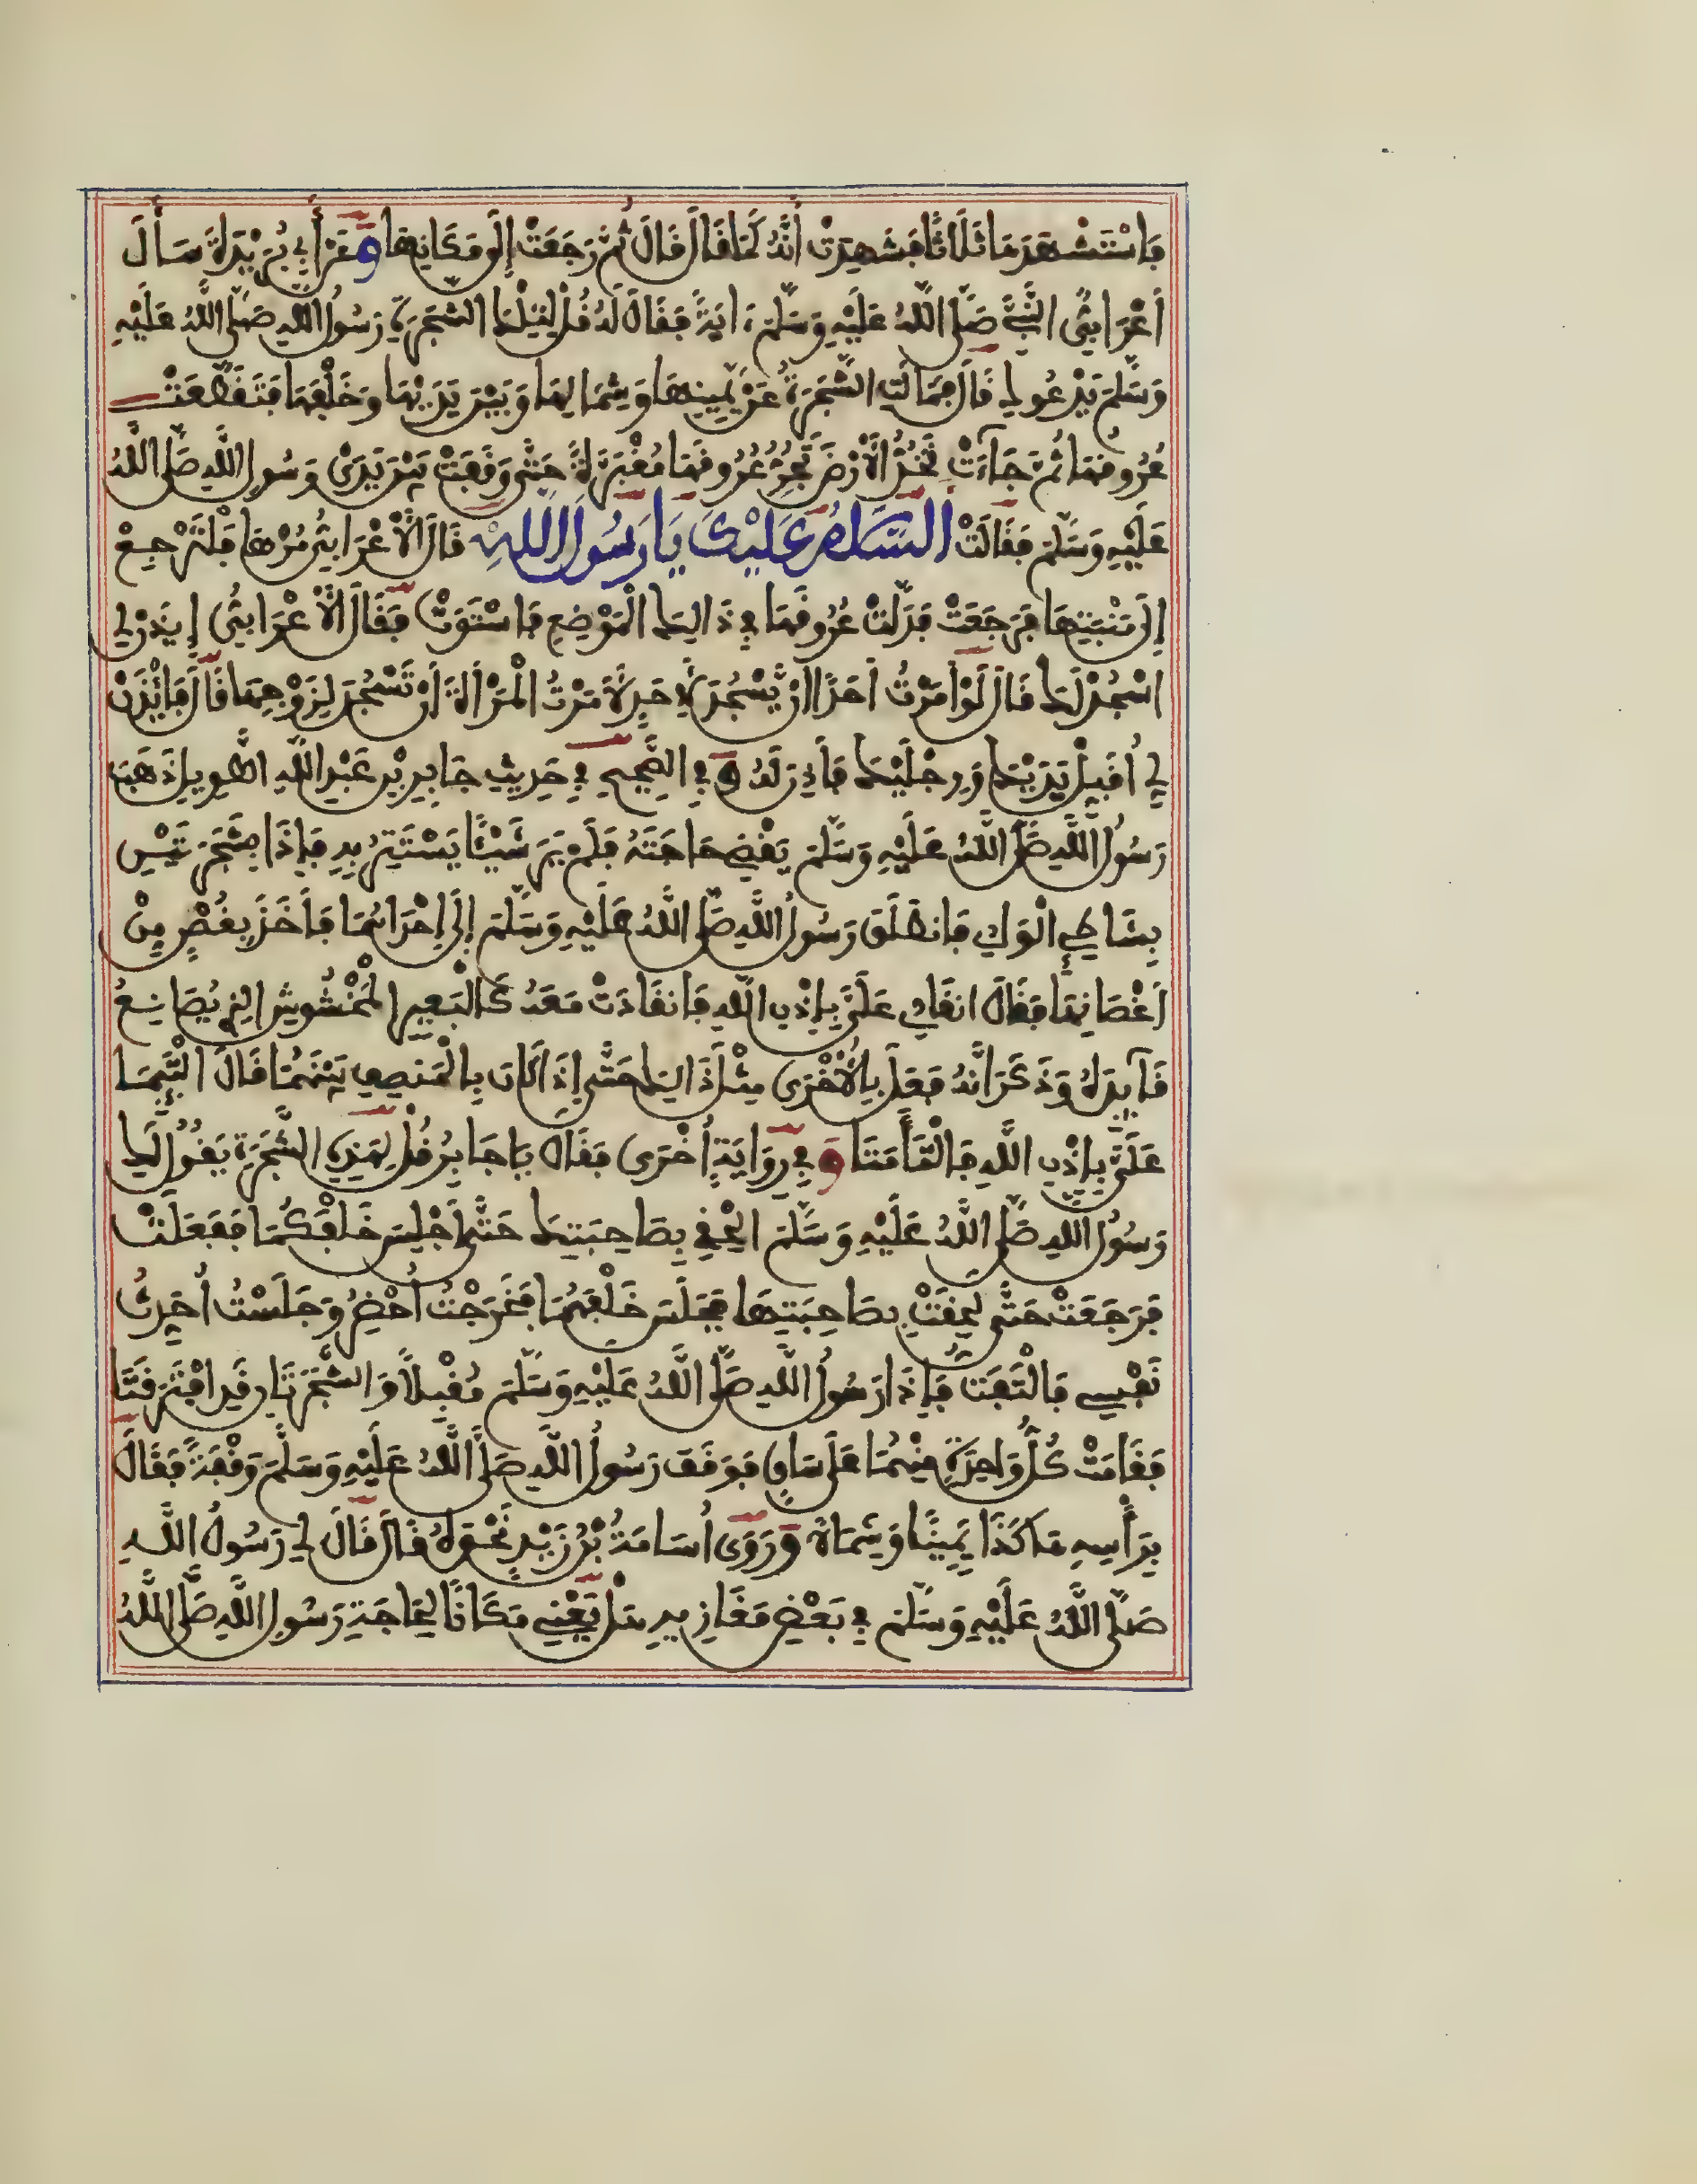 فَاسْتَشْهَدَهَا ثَلَاثًا فَشَهِدَتْ أَنَّهُ كَمَا قَالَ قَالَ ثُمَّ رَجَعَتْ إِلَى مَكَانِهَا وَعَنْ أَبِي بُرَيْدَةَ سَأَلَ
أَعْرَابِيٌّ النَّبِيَّ صَلَّى اللَّهُ عَلَيْهِ وَسَلَّمَ ءَايَةً فَقَالَ لَهُ قُلْ لِتِلْكَ الشَّجَرَةِ رَسُولُ اللَّهِ صَلَّى اللَّهُ عَلَيْهِ
وَسَلَّمَ يَدْعُوكِ قَالَ فَمَالَتِ الشَّجَرَةُ عَنْ يَمِينِهَا وَشِمَالِهَا وَبَيْنَ يَدَيْهَا وَخَلْفَهَا فَتَقَطَّعَتْ
عُرُوقُهَا ثُمَّ جَاءَتْ تَخُدُّ الْأَرْضَ تَجُرُّ عُرُوقَهَا مُغْبَرَّةً حَتَّى وَقَفَتْ بَيْنَ يَدَيْ رَسُولِ اللَّهِ صَلَّى اللَّهُ
عَلَيْهِ وَسَلَّمَ فَقَالَتْ السَّلَامُ عَلَيْكَ يَا رَسُولَ اللَّهِ قَالَ الْأَعْرَابِيُّ مُرْهَا فَلْتَرْجِعْ
إِلَى مَنْبِتِهَا فَرَجَعَتْ فَدَلَّتْ عُرُوقَهَا فِي ذَالِكَ الْمَوْضِعِ فَاسْتَوَتْ فَقَالَ الْأَعْرَابِيُّ إِيذَنْ لِي
اسْجُدْ لَكَ قَالَ لَوْ أَمَرْتُ أَحَدًا أَنْ يَسْجُدَ لِأَحَدٍ لَأَمَرْتُ الْمَرْأَةَ أَنْ تَسْجُدَ لِزَوْجِهَا قَالَ فَائْذَنْ
لِي أُقَبِّلْ يَدَيْكَ وَرِجْلَيْكَ فَأَذِنَ لَهُ وَفِي الصَّحِيحِ فِي حَدِيثِ جَابِرِ بْنِ عَبْدِ اللَّهِ الطَّوِيلِ ذَهَبَ
رَسُولُ اللَّهِ صَلَّى اللَّهُ عَلَيْهِ وَسَلَّمَ يَقْضِي حَاجَتَهُ فَلَمْ يَرَ شَيْئًا يَسْتَتِرُ بِهِ فَإِذَا بِشَجَرَتَيْنِ
بِشَاطِئِ الْوَادِي فَانْطَلَقَ رَسُولُ اللَّهِ صَلَّى اللَّهُ عَلَيْهِ وَسَلَّمَ إِلَى إِحْدَاهُمَا فَأَخَذَ بِغُصْنٍ مِنْ
أَغْصَانِهَا فَقَالَ انْقَادِي عَلَيَّ بِإِذْنِ اللَّهِ فَانْقَادَتْ مَعَهُ كَالْبَعِيرِ الْمَخْشُوشِ الَّذِي يُصَانِعُ
قَائِدَهُ وَذَكَرَ أَنَّهُ فَعَلَ بِالْأُخْرَى مِثْلَ ذَالِكَ حَتَّى إِذَا كَانَ بِالْمَنْصَفِ بَيْنَهُمَا قَالَ الْتَئِمَا
عَلَيَّ بِإِذْنِ اللَّهِ فَالْتَأَمَتَا وَفِي رِوَايَةٍ أُخْرَى فَقَالَ يَا جَابِرُ قُلْ لِهَذِهِ الشَّجَرَةِ يَقُولُ لَكِ
رَسُولُ اللَّهِ صَلَّى اللَّهُ عَلَيْهِ وَسَلَّمَ الْحَقِي بِصَاحِبَتِكِ حَتَّى أَجْلِسَ خَلْفَكُمَا فَفَعَلَتْ
فَرَجَعَتْ حَتَّى لَحِقَتْ بِصَاحِبَتِهَا فَجَلَسَ خَلْفَهُمَا فَخَرَجْتُ أُحْضِرُ وَجَلَسْتُ أُحَدِّثُ
نَفْسِي فَالْتَفَتُّ فَإِذَا رَسُولُ اللَّهِ صَلَّى اللَّهُ عَلَيْهِ وَسَلَّمَ مُقْبِلًا وَالشَّجَرَتَانِ قَدِ افْتَرَقَتَا
فَقَامَتْ كُلُّ وَاحِدَةٍ مِنْهُمَا عَلَى سَاقٍ فَوَقَفَ رَسُولُ اللَّهِ صَلَّى اللَّهُ عَلَيْهِ وَسَلَّمَ وَقْفَةً فَقَالَ
بِرَأْسِهِ هَاكَذَا يَمِينًا وَشِمَالًا وَرَوَى أُسَامَةُ بْنُ زَيْدٍ نَحْوَهُ قَالَ قَالَ لِي رَسُولُ اللَّهِ
صَلَّى اللَّهُ عَلَيْهِ وَسَلَّمَ فِي بَعْضِ مَغَازِيهِ هَلْ يَعْنِي مَكَانًا لِحَاجَةِ رَسُولِ اللَّهِ صَلَّى اللَّهُ